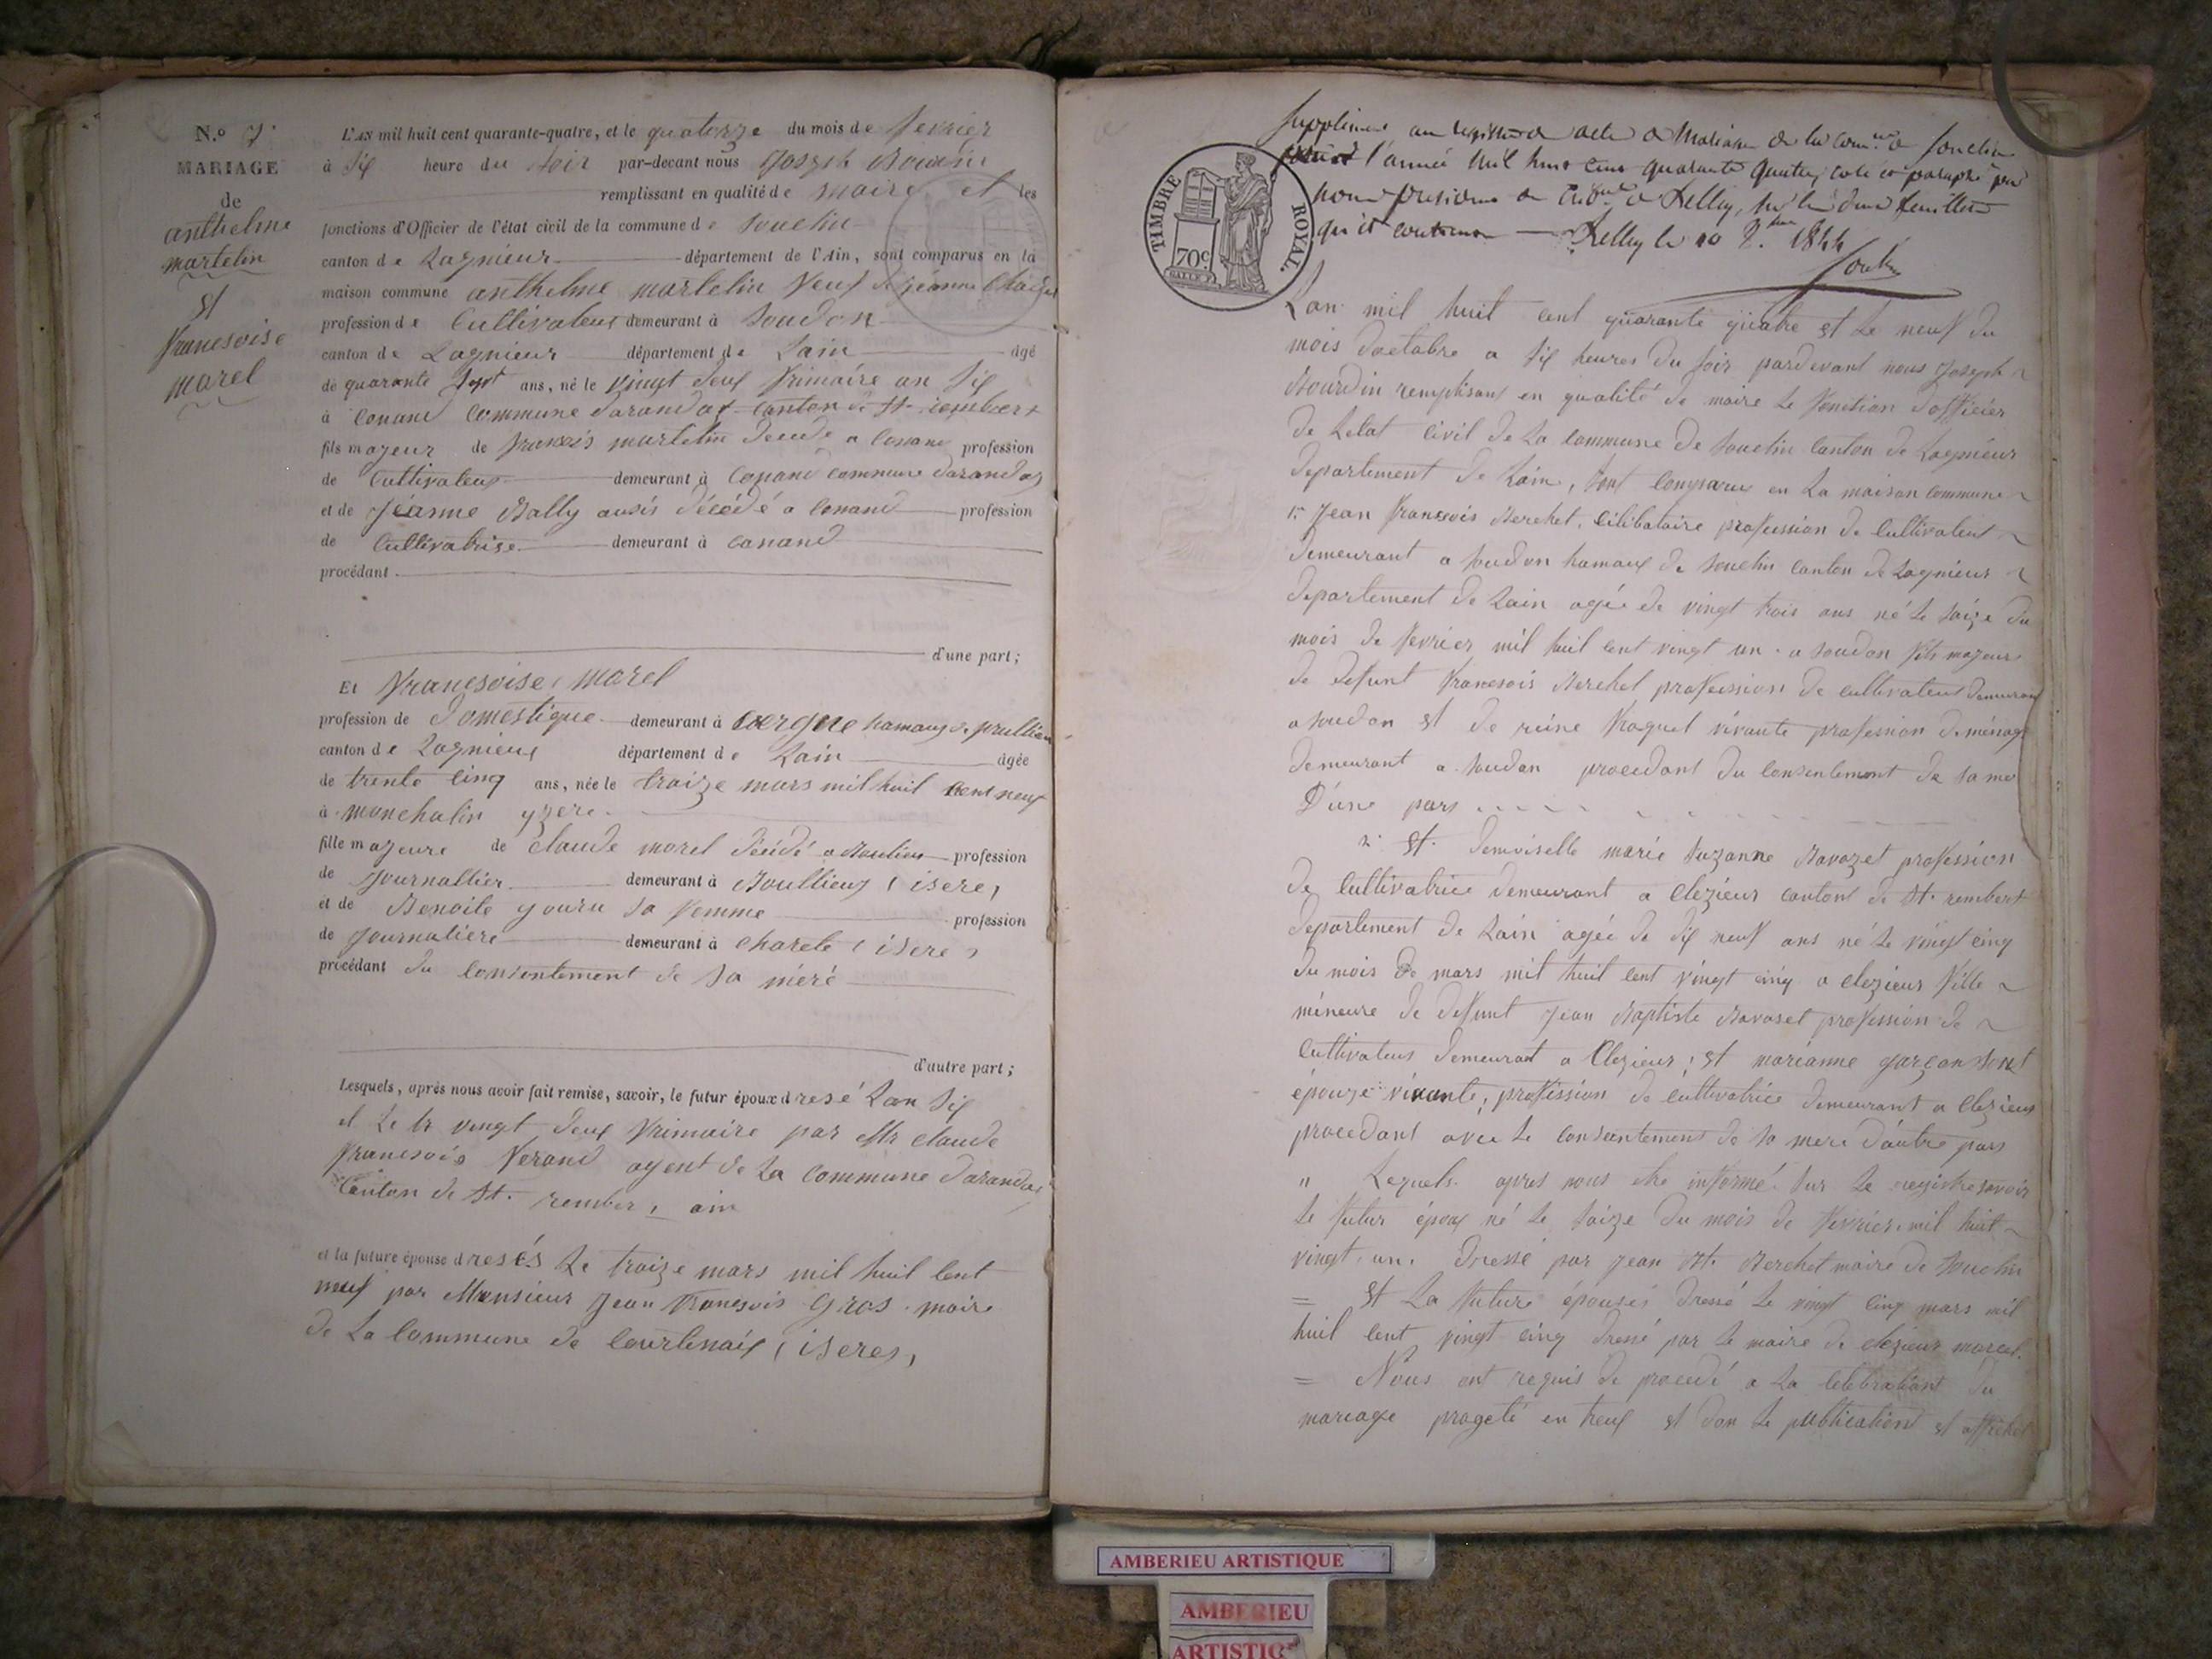 N.o 7.
MARIAGE
de
anthelme
martelin
et
francsoise
marel
L'AN mil huit cent quarante-quatre, et le quatorze du mois de fevrier
à six heure du soir par-devant nous Joseph Bourdin
remplissant en qualité de maire et les
fonctions d'Officier de l'état civil de la commune de Souclin
canton de Lagnieur département de l'Ain, sont comparus en la
maison commune anthelme martelin veuf de jéanne
profession de Cultivateur demeurant à Soudon
canton de Lagnieur département de Lain âgé
de quarante sept ans, né le vingt deux frimaire an six
à Conand Commune darandas canton de St. rembert
fils majeur de francois martelin décédé a Conand profession
de Cultivateur demeurant à Conand commune darandas
et de jéanne Bally ausis décédé a Conand profession
de Cultivatrise demeurant à Conand
procédant
d'une part;
Et francsoise marel
profession de domestique demeurant à vergne hamaux de prullieu
canton de Lagnieux département de Lain âgée
de trente cinq ans, née le traize mars mil huit cent neuf
à monchalin yzere
fille majeure de claude morel décédé a Boulieu profession
de journallier demeurant à Boullieux (isere)
et de Benoite sa femme profession
de journaliere demeurant à charete (isere)
procédant du consentement de sa méré
d'autre part;
Lesquels, après nous avoir fait remise, savoir, le futur époux dresé Lan six
et Le vingt deux frimaire par Mr claude
francsois ferand agent de La Commune darandas
Canton de St. rember, ain
et la future épouse dresés Le traize mars mil huit Cent
neuf par Monsieur Jean francsois Gros maire
de La Commune de Courtenaix (iseres)
TIMBRE ROYAL.
70c.
Supplement au registre de acte de Mariage de la comune de Souclin
l'année mil huit cent quarante quatre, coté et paraphé par
nous president du tribal de Belley, sur les deux feuillets
qu'il contient Belley le 10 8.bre 1844
Lan mil huit cent quarante quatre et Le neuf du
mois doctobre a six heures du soir pardevant nous Joseph
Bourdin remplisant en qualité de maire Le fonction dofficier
de Letat Civil de La Commune de Souclin Canton de Lagnieur
departement de Lain, sont Comparus en La maison Commune
1.º Jean francsois Berchet, Cilibataire profession de Cultivateur
demeurant a Soudon hamaux de Souclin Canton de Lagnieur
departement de Lain agée de vingt trois ans né Le saize du
mois de fevrier mil huit cent vingt un a Soudon fils majeur
de defunt francsois Berchet profession de cultivateur demeurant
a Soudon et de reine vivante profession de ménage
demeurant a Soudon procedant du Consentement de sa mere
D'une pars
2: et. demoiselle marie Suzanne Bavozet profession
de Cultivatrice demeurant a Clezieur canton de St. rembert
departement de Lain agée de dix neuf ans né Le vingt cinq
du mois de mars mil huit cent vingt cinq a clezieur fille
mineure de defunt Jean Baptiste Bavoset profession de
Cultivateur demeurant a Clezieur; et marianne garçon sont
épouze vivante, profession de cultivatrice demeurant a Clezieur
procedant avec Le consentement de sa mere d'autre pars
" Lequels apres nous etre informé sur Le registre savoir
Le futur époux né Le saize du mois de fevrier mil huit
vingt un. dressé par jean Bt. Berchet maire de Souclin
= et La future épouses dressé Le vingt cinq mars mil
huit cent vingt cinq dressé par Le maire de clezieur marcel.
= Nous ont requis de procedé a La célébration du
mariage progeté en treux et don Le publication et affichet
AMBERIEU ARTISTIQUE
AMBERIEU
ARTISTIQ